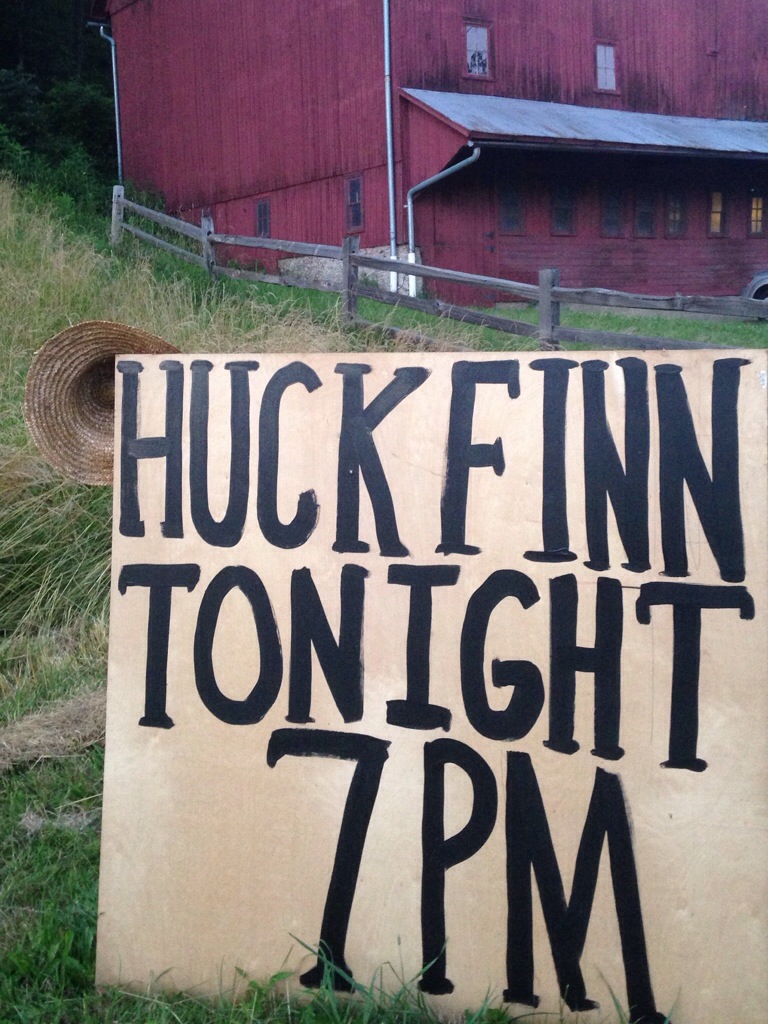 HUCK FINN
TONIGHT
7PM